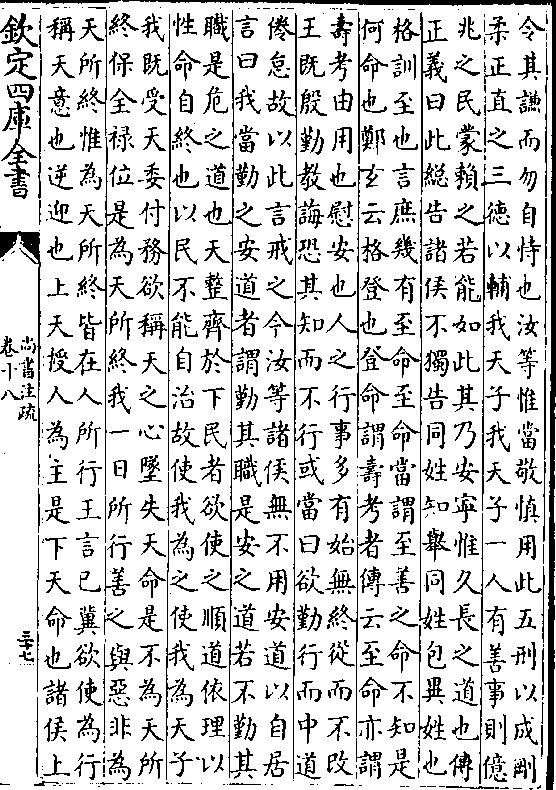 令其謙而勿自恃也汝等惟當敬慎用此五刑以成剛
柔正直之三德以輔我天子我天子一人有善事則億
兆之民蒙賴之若能如此其乃安寧惟久長之道也傳
正義曰此総告諸侯不獨告同姓知舉同姓包異姓也
格訓至也言庶幾有至命至命當謂至善之命不知是
何命也鄭玄云格登也登命謂壽考者傳云至命亦謂
壽考由用也慰安也人之行事多有始無終從而不改
王既殷勤教誨恐其知而不行或當曰欲勤行而中道
倦怠故以此言戒之今汝等諸侯無不用安道以自居
言曰我當勤之安道者謂勤其職是安之道若不勤其
職是危之道也天整齊於下民者欲使之順道依理以
性命自終也以民不能自治故使我為之使我為天子
我既受天委付務欲稱天之心墜失天命是不為天所
終保全禄位是為天所終我一日所行善之與惡非為
天所終惟為天所終皆在人所行王言已冀欲使為行
稱天意也逆迎也上天授人為主是下天命也諸侯上
欽定四庫全書
尚書注疏
卷十八
三十七